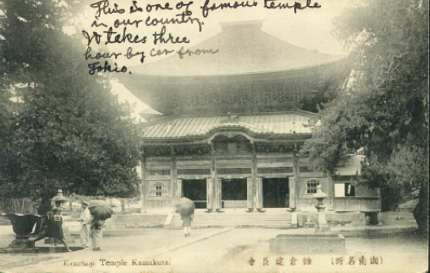 This is one of famous temple
in our country.
It takes three
hour by car from
Tokio.
Kenchoji Temple Kamakura
寺長建倉鎌 (所名南湘)